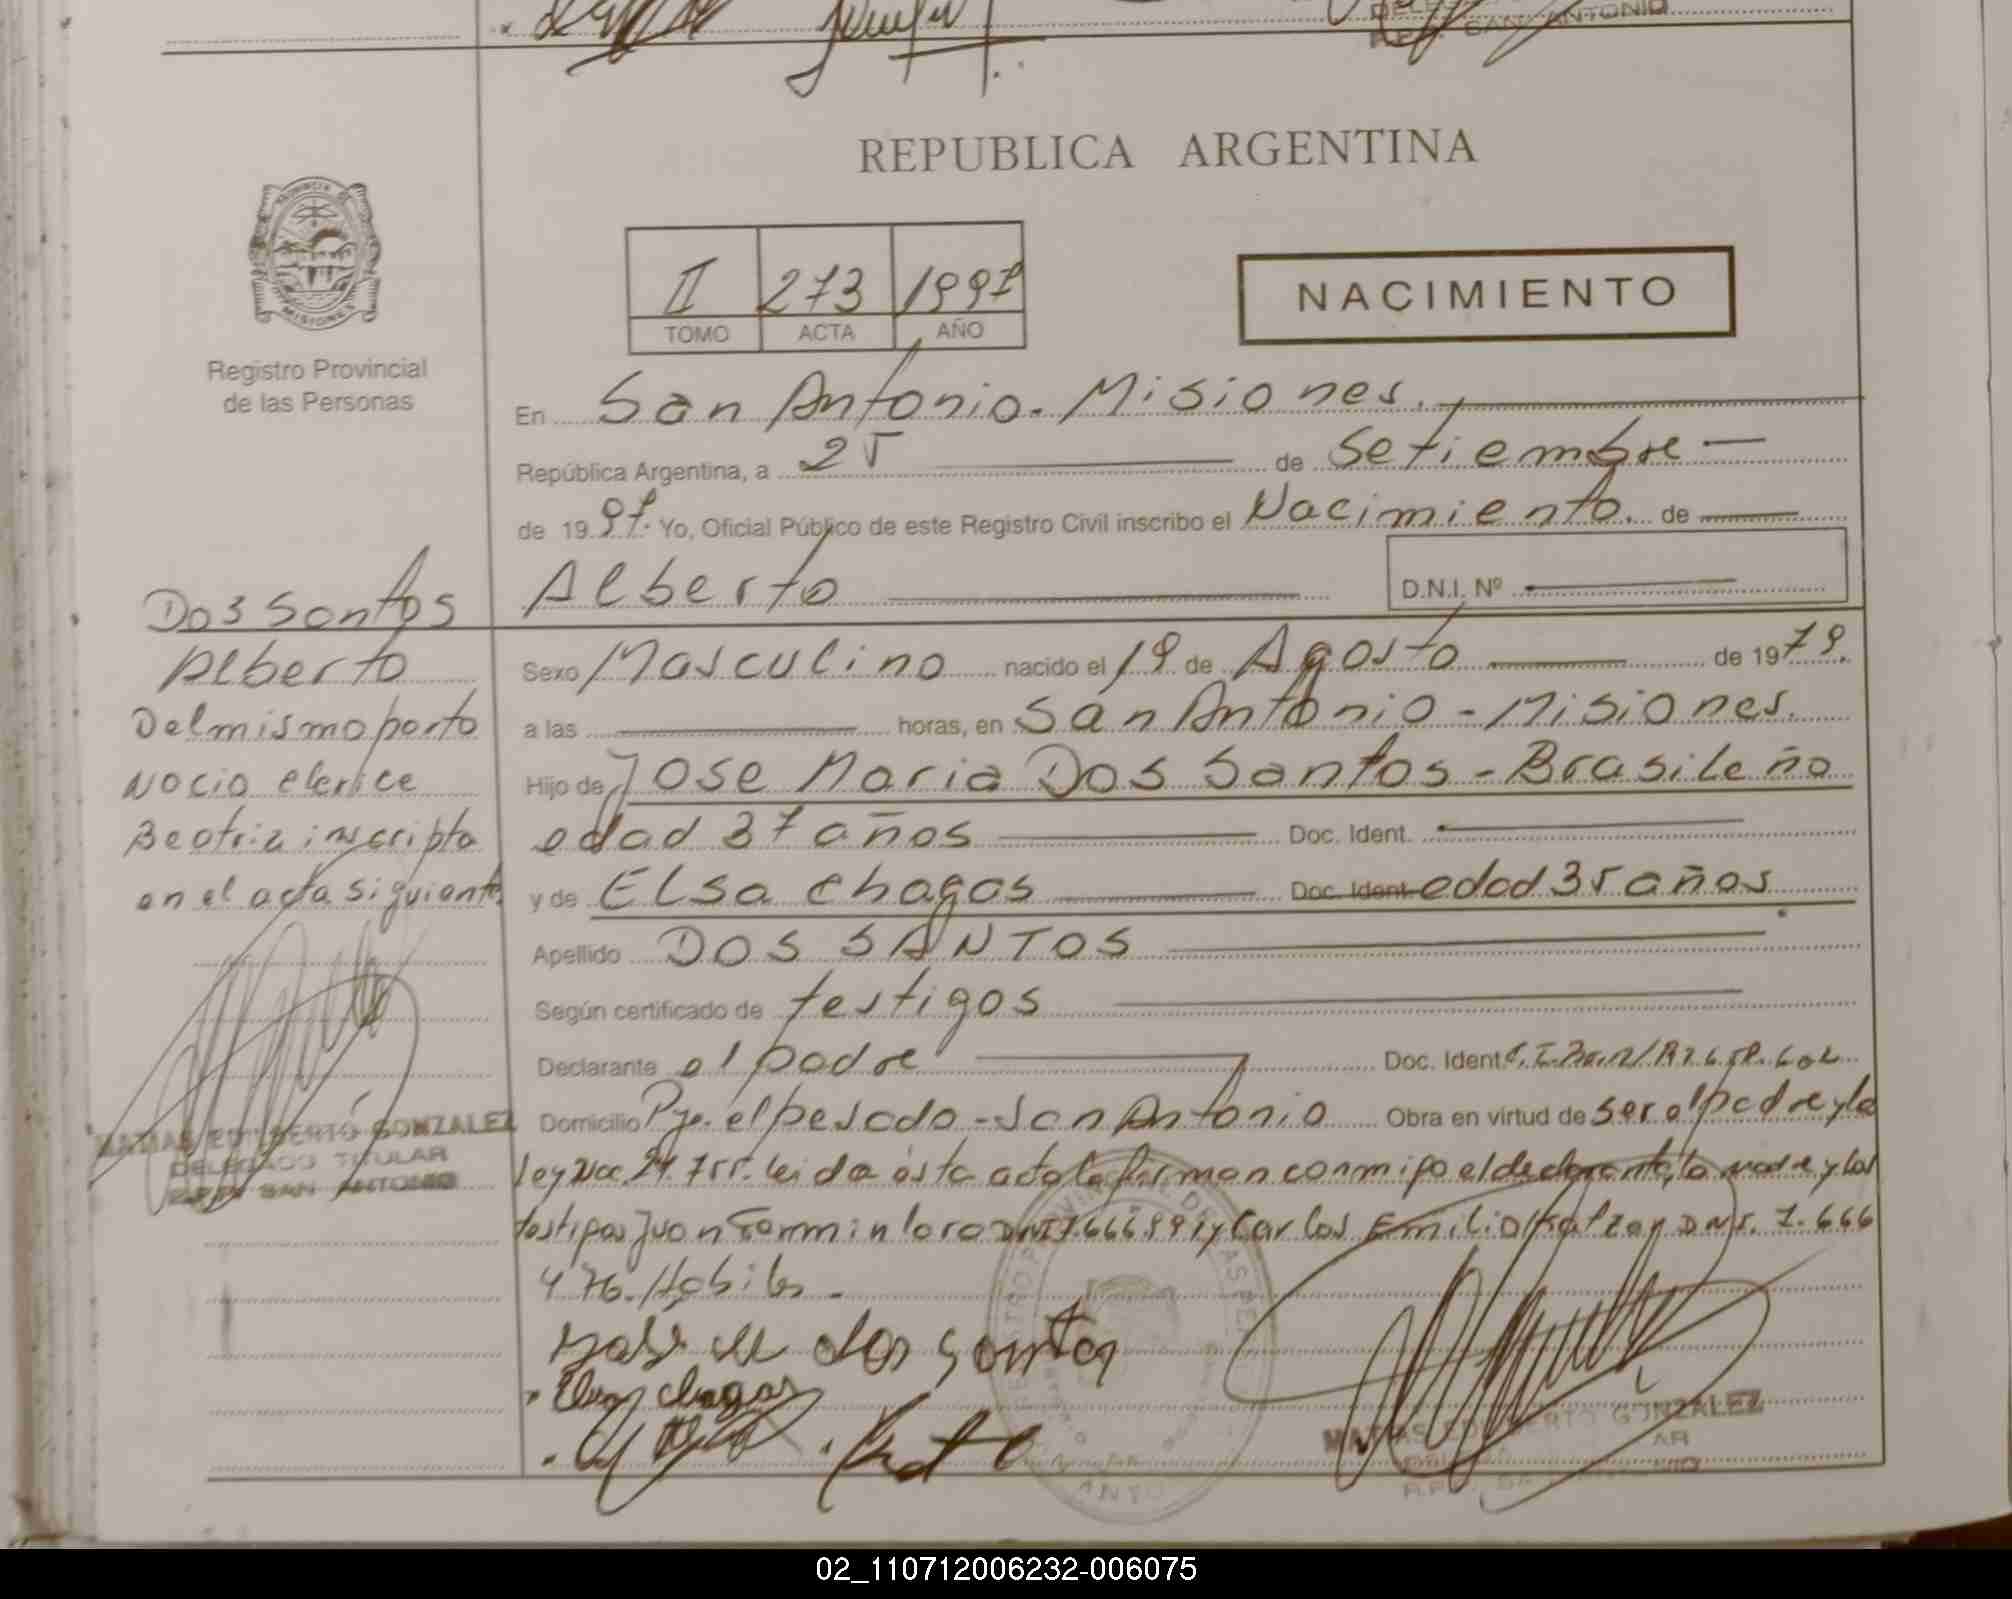 REPUBLICA ARGENTINA
PROVINCIA DE
MISIONES
Registro Provincial
de las Personas
II 273 1997
TOMO ACTA AÑO
NACIMIENTO
En San Antonio. Misiones.
República Argentina, a 25 de Setiembre
de 1997. Yo, Oficial Público de este Registro Civil inscribo el Nacimiento. de
Alberto D.N.I. Nº
Dos Santos
Alberto
Del mismo parto
nacio
Beatriz inscripta
en el acta siguiente
MATIAS EDILBERTO GONZALEZ
DELEGADO TITULAR
R.P.P. SAN ANTONIO
Sexo Masculino nacido el 19 de Agosto de 1979.
a las horas, en San Antonio - Misiones.
Hijo de Jose Maria Dos Santos - Brasileño
edad 37 años Doc. Ident.
y de Elsa Chagas Doc. Ident edad 35 años.
Apellido DOS SANTOS
Según certificado de testigos
Declarante el padre Doc. Ident.
Domicilio Pje. el pesado - San Antonio Obra en virtud de ser el padre y la
ley Nac. 24.755. leida ésta acta la firman conmigo el declarante, la madre y los
testigos Juan Fermin DNI y Carlos Emilio DNI. 7.666
476. Habiles.
dos santos
Elsa chagas
MATIAS EDILBERTO GONZALEZ
02_110712006232-006075